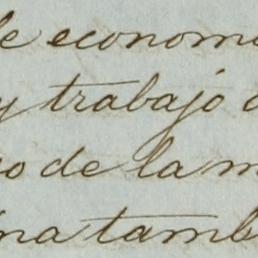 de economi
y trabajo
so de la m
ina tamb